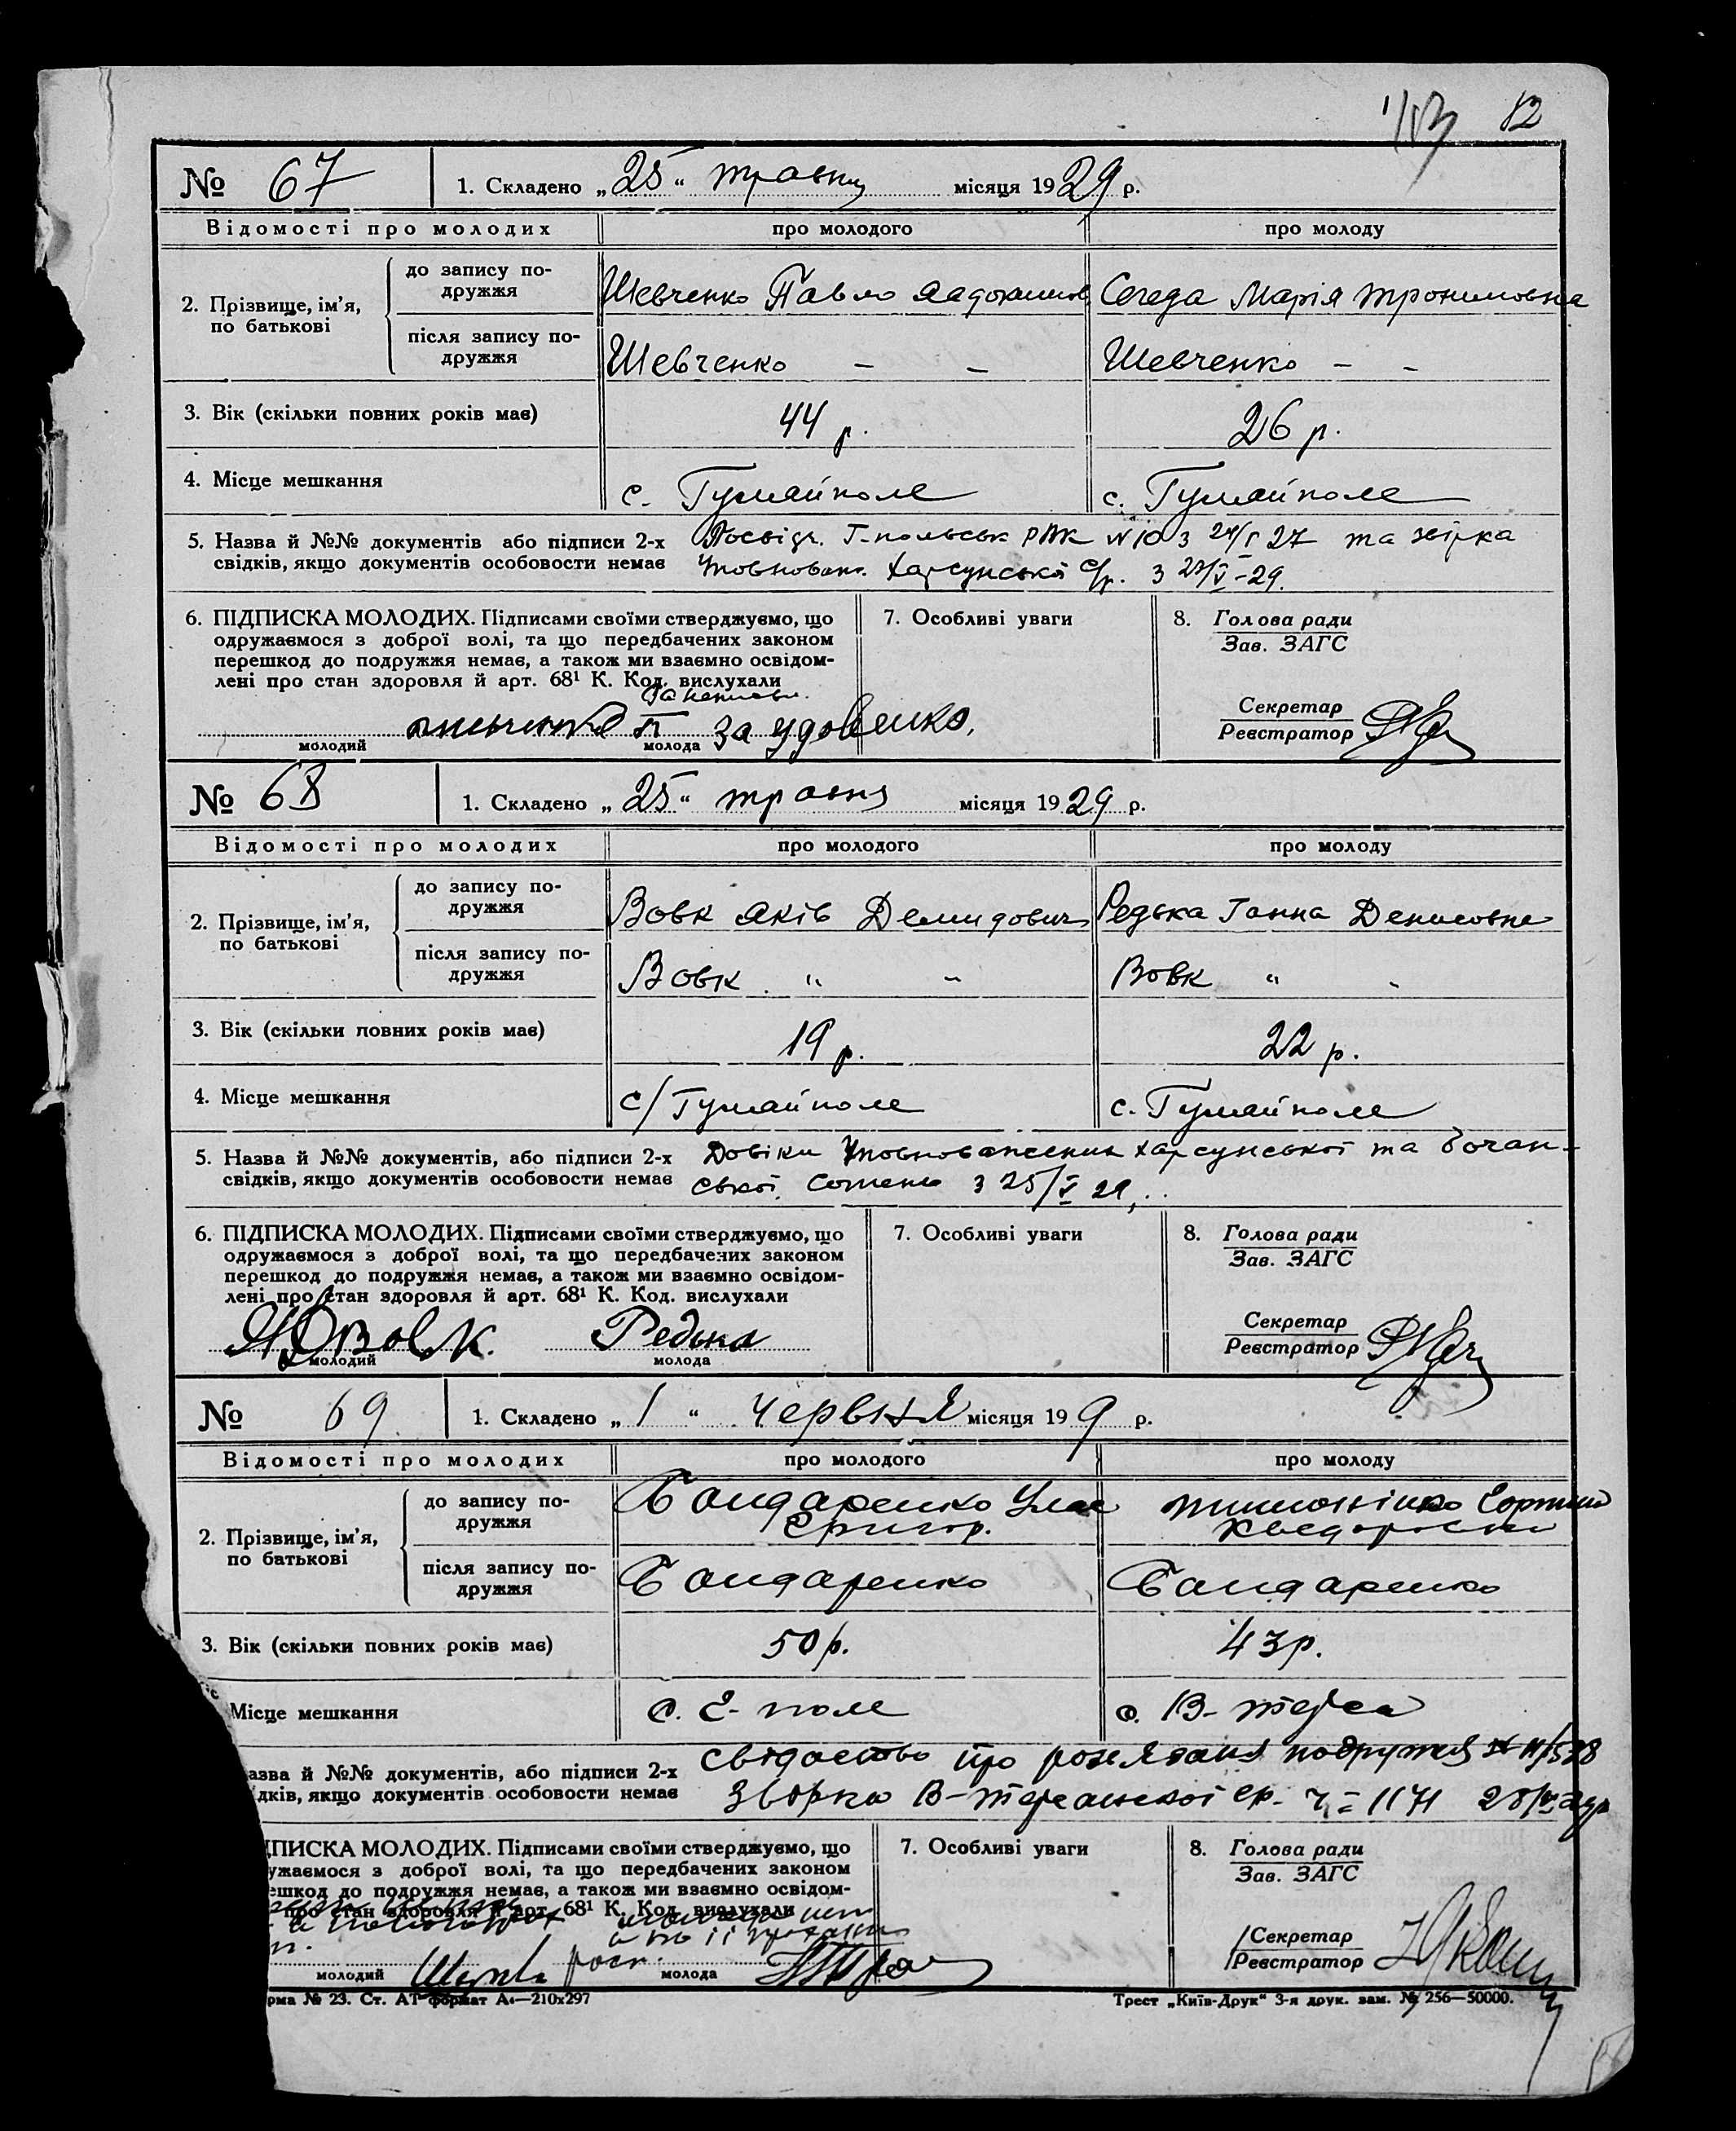 82
№ 67 1. Складено „25“ травня місяця 1929 р.
Відомості про молодих про молодого про молоду
2. Прізвище, ім’я, по батькові
до запису подружжя Шевченко Павло Сегеда Марія Трохимовна
після запису подружжя Шевченко – – Шевченко – –
3. Вік (скільки повних років має) 44 р. 26 р.
4. Місце мешкання с. Гумайполе с. Гумайполе
5. Назва й №№ документів або підписи 2-х Посвідч. Г-польськ РВК № 10 з 27 та звірка
свідків, якщо документів особовости немає Уповноваж. Харсунської с/р. з 23/V-29.
6. ПІДПИСКА МОЛОДИХ. Підписами своїми стверджуємо, що
одружаємося з доброї волі, та що передбачених законом
перешкод до подружжя немає, а також ми взаємно освідом-
лені про стан здоровля й арт. 68¹ К. Код. вислухали
7. Особливі уваги
8. Голова ради
Зав. ЗАГС
Секретар
Реєстратор
за Удовенко.
молодий молода
№ 68 1. Складено „25“ травня місяця 1929 р.
Відомості про молодих про молодого про молоду
2. Прізвище, ім’я, по батькові
до запису подружжя Вовк Яків Демидович Редька Ганна Денисовна
після запису подружжя Вовк " " Вовк " "
3. Вік (скільки повних років має) 19 р. 22 р.
4. Місце мешкання с/Гумайполе с. Гумайполе
5. Назва й №№ документів, або підписи 2-х Довідки Уповноважених Харсунської та Бочан-
свідків, якщо документів особовости немає ської Сотень з 25/V 29.
6. ПІДПИСКА МОЛОДИХ. Підписами своїми стверджуємо, що
одружаємося з доброї волі, та що передбачених законом
перешкод до подружжя немає, а також ми взаємно освідом-
лені про стан здоровля й арт. 68¹ К. Код. вислухали
7. Особливі уваги
8. Голова ради
Зав. ЗАГС
Секретар
Реєстратор
ЯДВовк. Редька
молодий молода
№ 69 1. Складено „1“ червня місяця 19 9 р.
Відомості про молодих про молодого про молоду
2. Прізвище, ім’я, по батькові
до запису подружжя Бондаренко Улас Григор. Тимошінко Хведоровна
після запису подружжя Бондаренко Бондаренко
3. Вік (скільки повних років має) 50 р. 43 р.
Місце мешкання с. Е-поле с. В-Терса
азва й №№ документів, або підписи 2-х свідоство про розвязаня подружжя
ідків, якщо документів особовости немає звірка В-Терсанської с.р. ч = 1171
ДПИСКА МОЛОДИХ. Підписами своїми стверджуємо, що
ужаємося з доброї волі, та що передбачених законом
ешкод до подружжя немає, а також ми взаємно освідом-
про стан здоровля й арт. 68¹ К. Код. вислухали
7. Особливі уваги
8. Голова ради
Зав. ЗАГС
Секретар
Реєстратор
росп.
молодий молода
рма № 23. Ст. АТ формат А₄—210х297 Трест „Київ-Друк“ 3-я друк. зам. № 256—50000.